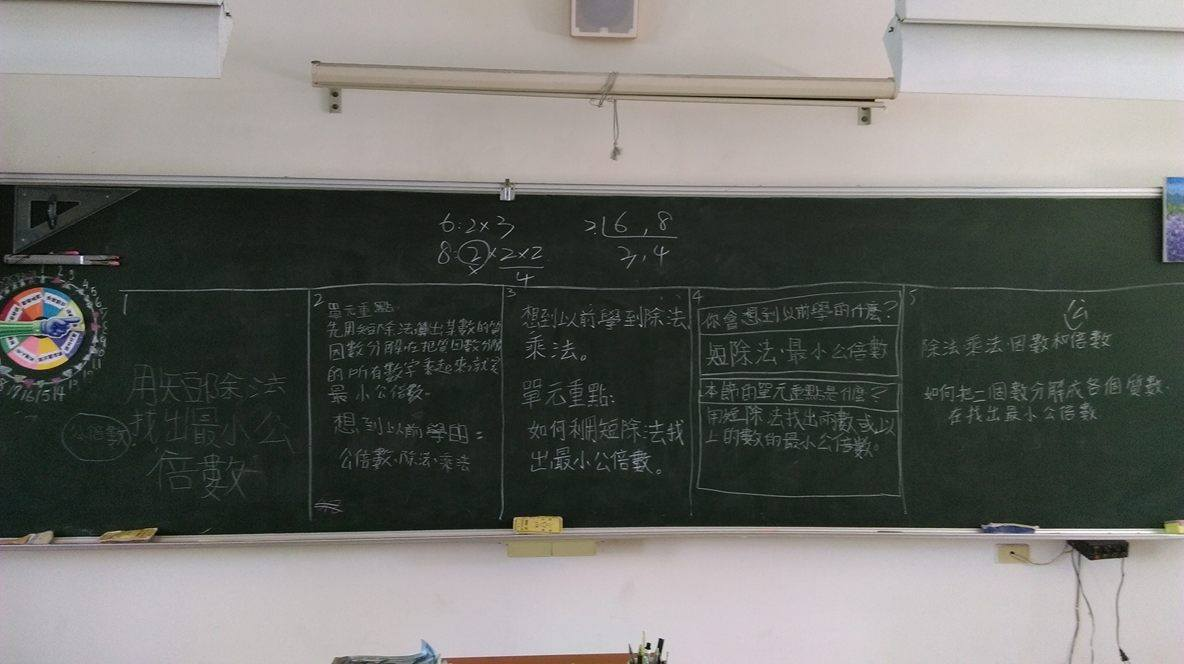 6:2×3
8:2×2×2
4
2 6,8
3,4
1
用短除法
找出最小公
倍數
公倍數
2
單元重點:
先用短除法算出某數的質
因數分解,在把質因數分解
的所有數字乘起來就是
最小公倍數。
想到以前學的:
公倍數、除法、乘法
3
想到以前學到除法,
乘法。
單元重點:
如何利用短除法找
出最小公倍數。
4
你會想到以前學的什麼?
短除法、最小公倍數
本節的單元重點是什麼?
用短除法找出兩數或以
上的數的最小公倍數。
5
公
除法乘法因數和倍數
如何把二個數分解成各個質數、
在找出最小公倍數